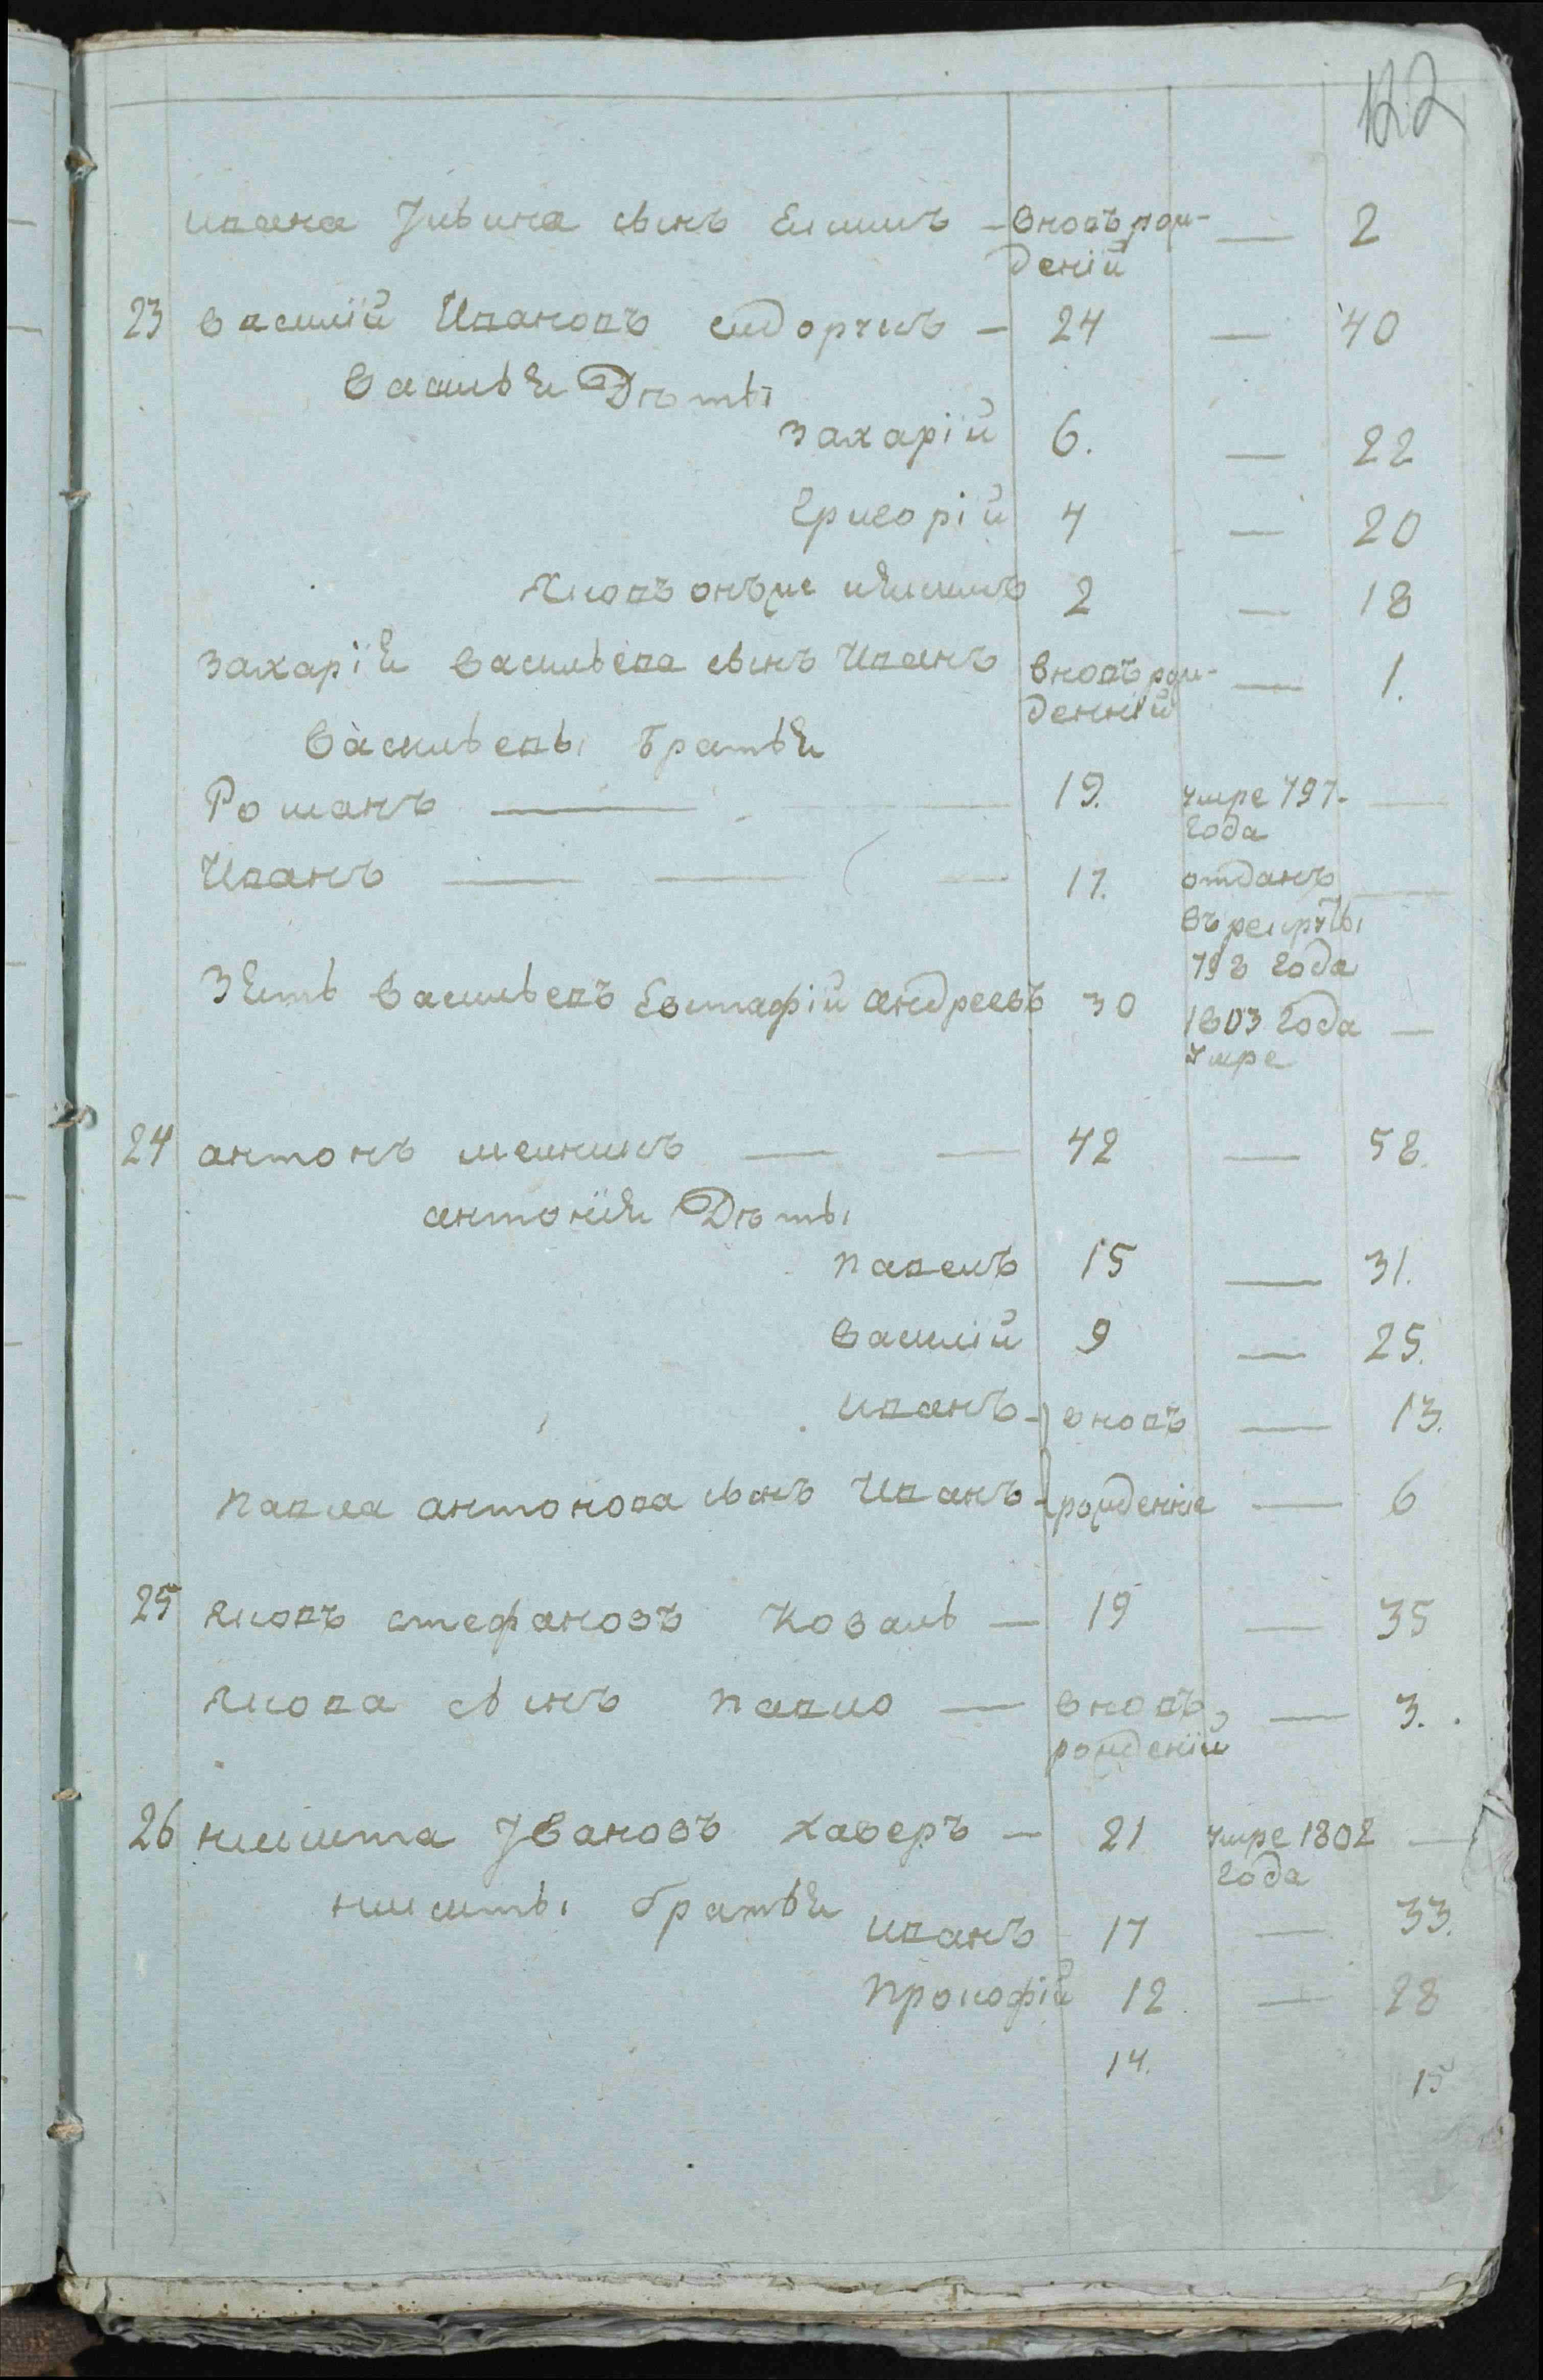 122
Ивана Увина сынъ Якимъ — вновь рож-
денiй — 2
23 Василiй Ивановъ сидорчикъ — 24 — 40
Василья Дѣты
Захарiй 6. — 22
Григорiй 4 — 20
Яковъ онъже иякимъ 2 — 18
Захарiя Васильева сынъ Иванъ вновь рож-
деннiй — 1.
Васильевы братья
Романъ — 19. умре 797-
года —
Иванъ — 17. отданъ
въ рекруты
798 года —
Зять Васильевъ Евстафiй андреевъ 30 1803 года
умре —
24 антонъ мельникъ — 42 — 58.
антонiя Дѣты
павелъ 15 — 31.
Василiй 9 — 25.
иванъ - вновь — 13.
павла антонова сынъ Иванъ - рожденнiе — 6
25 яковъ стефановъ Коваль — 19 — 35
якова сынъ павло — вновь
рожденiй — 3.
26 никита Iвановъ хаверъ — 21 умре 1802
года —
никиты братья
иванъ 17 — 33.
Прокофiй 12 — 28
14. 15